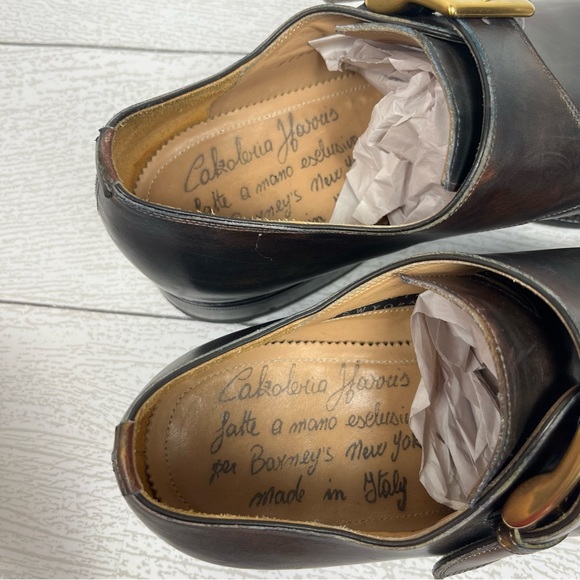 Calzoleria Harris
fatte a mano esclusiv
Barney's New York
made in
Calzoleria Harris
fatte a mano esclusiv
per Barney's New York
made in Italy